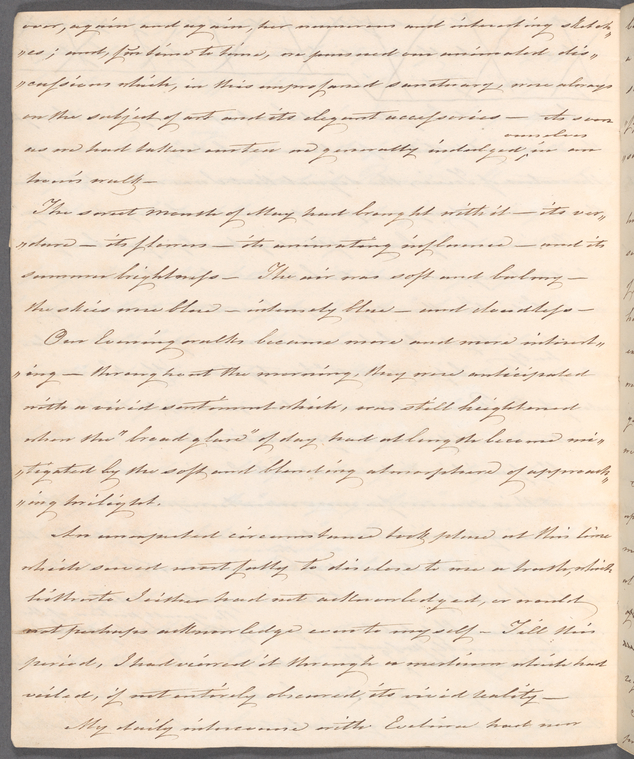 over, again and again, her numerous and interesting sketch"
"es; and, from time to time, we pursued our animated dis"
"cussions which, in this unprofaned sanctuary, were always
on the subject of art and its elegant accessories — As soon
as we had taken we generally indulged ourselves in an
hour's walk —
The sweet month of May had brought with it — its ver"
"dure — its flowers — its animating influence — and its
summer brightness — The air was soft and balmy —
the skies were blue — intensely blue — and cloudless —
Our Evening walks became more and more interest"
"ing — throughout the morning, they were anticipated
with a vivid sentiment which, was still heightened
when the "broad glare" of day had at length become mi"
"tigated by the soft and blending atmosphere of approach"
"ing twilight.
An unexpected circumstance took place at this time
which served most fully to disclose to me a truth, which
hitherto I either had not acknowledged, or would
not perhaps acknowledge even to myself — Till this
period, I had viewed it through a medium which had
veiled, if not entirely obscured its vivid reality —
My daily intercourse with Evelina had now